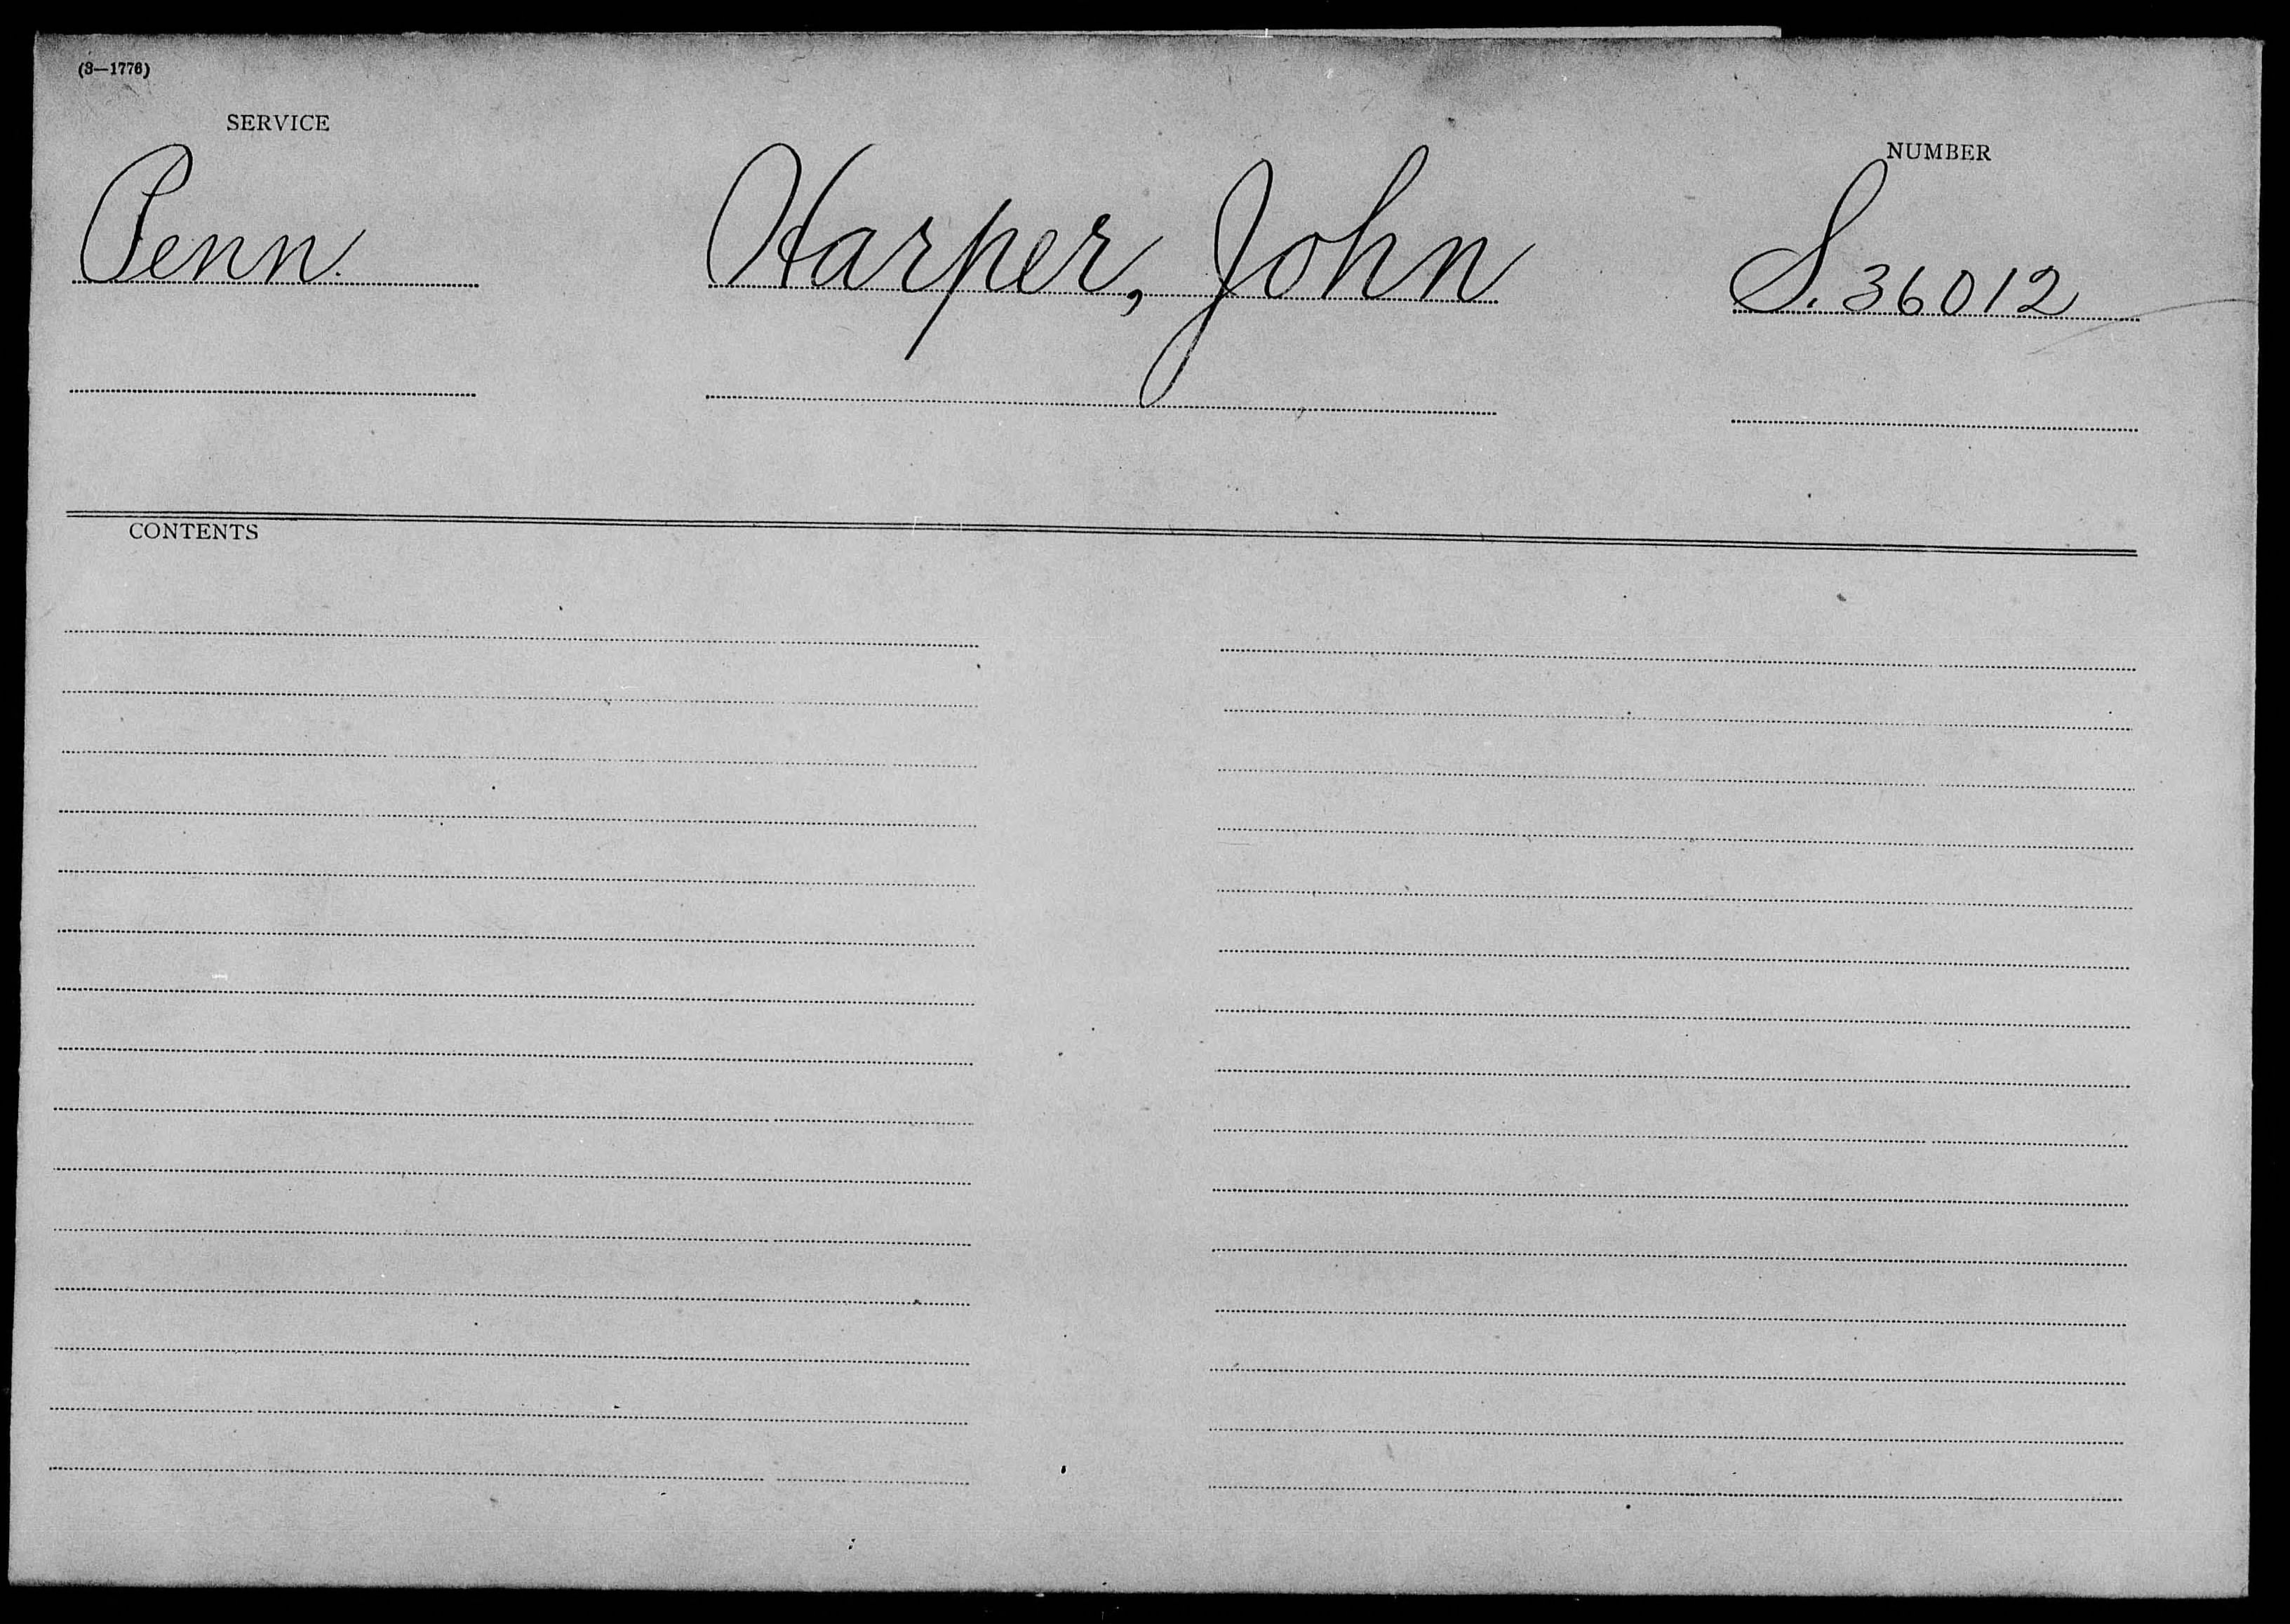 (3—1776)
SERVICE
NUMBER
Penn.
Harper, John
S. 36012
CONTENTS